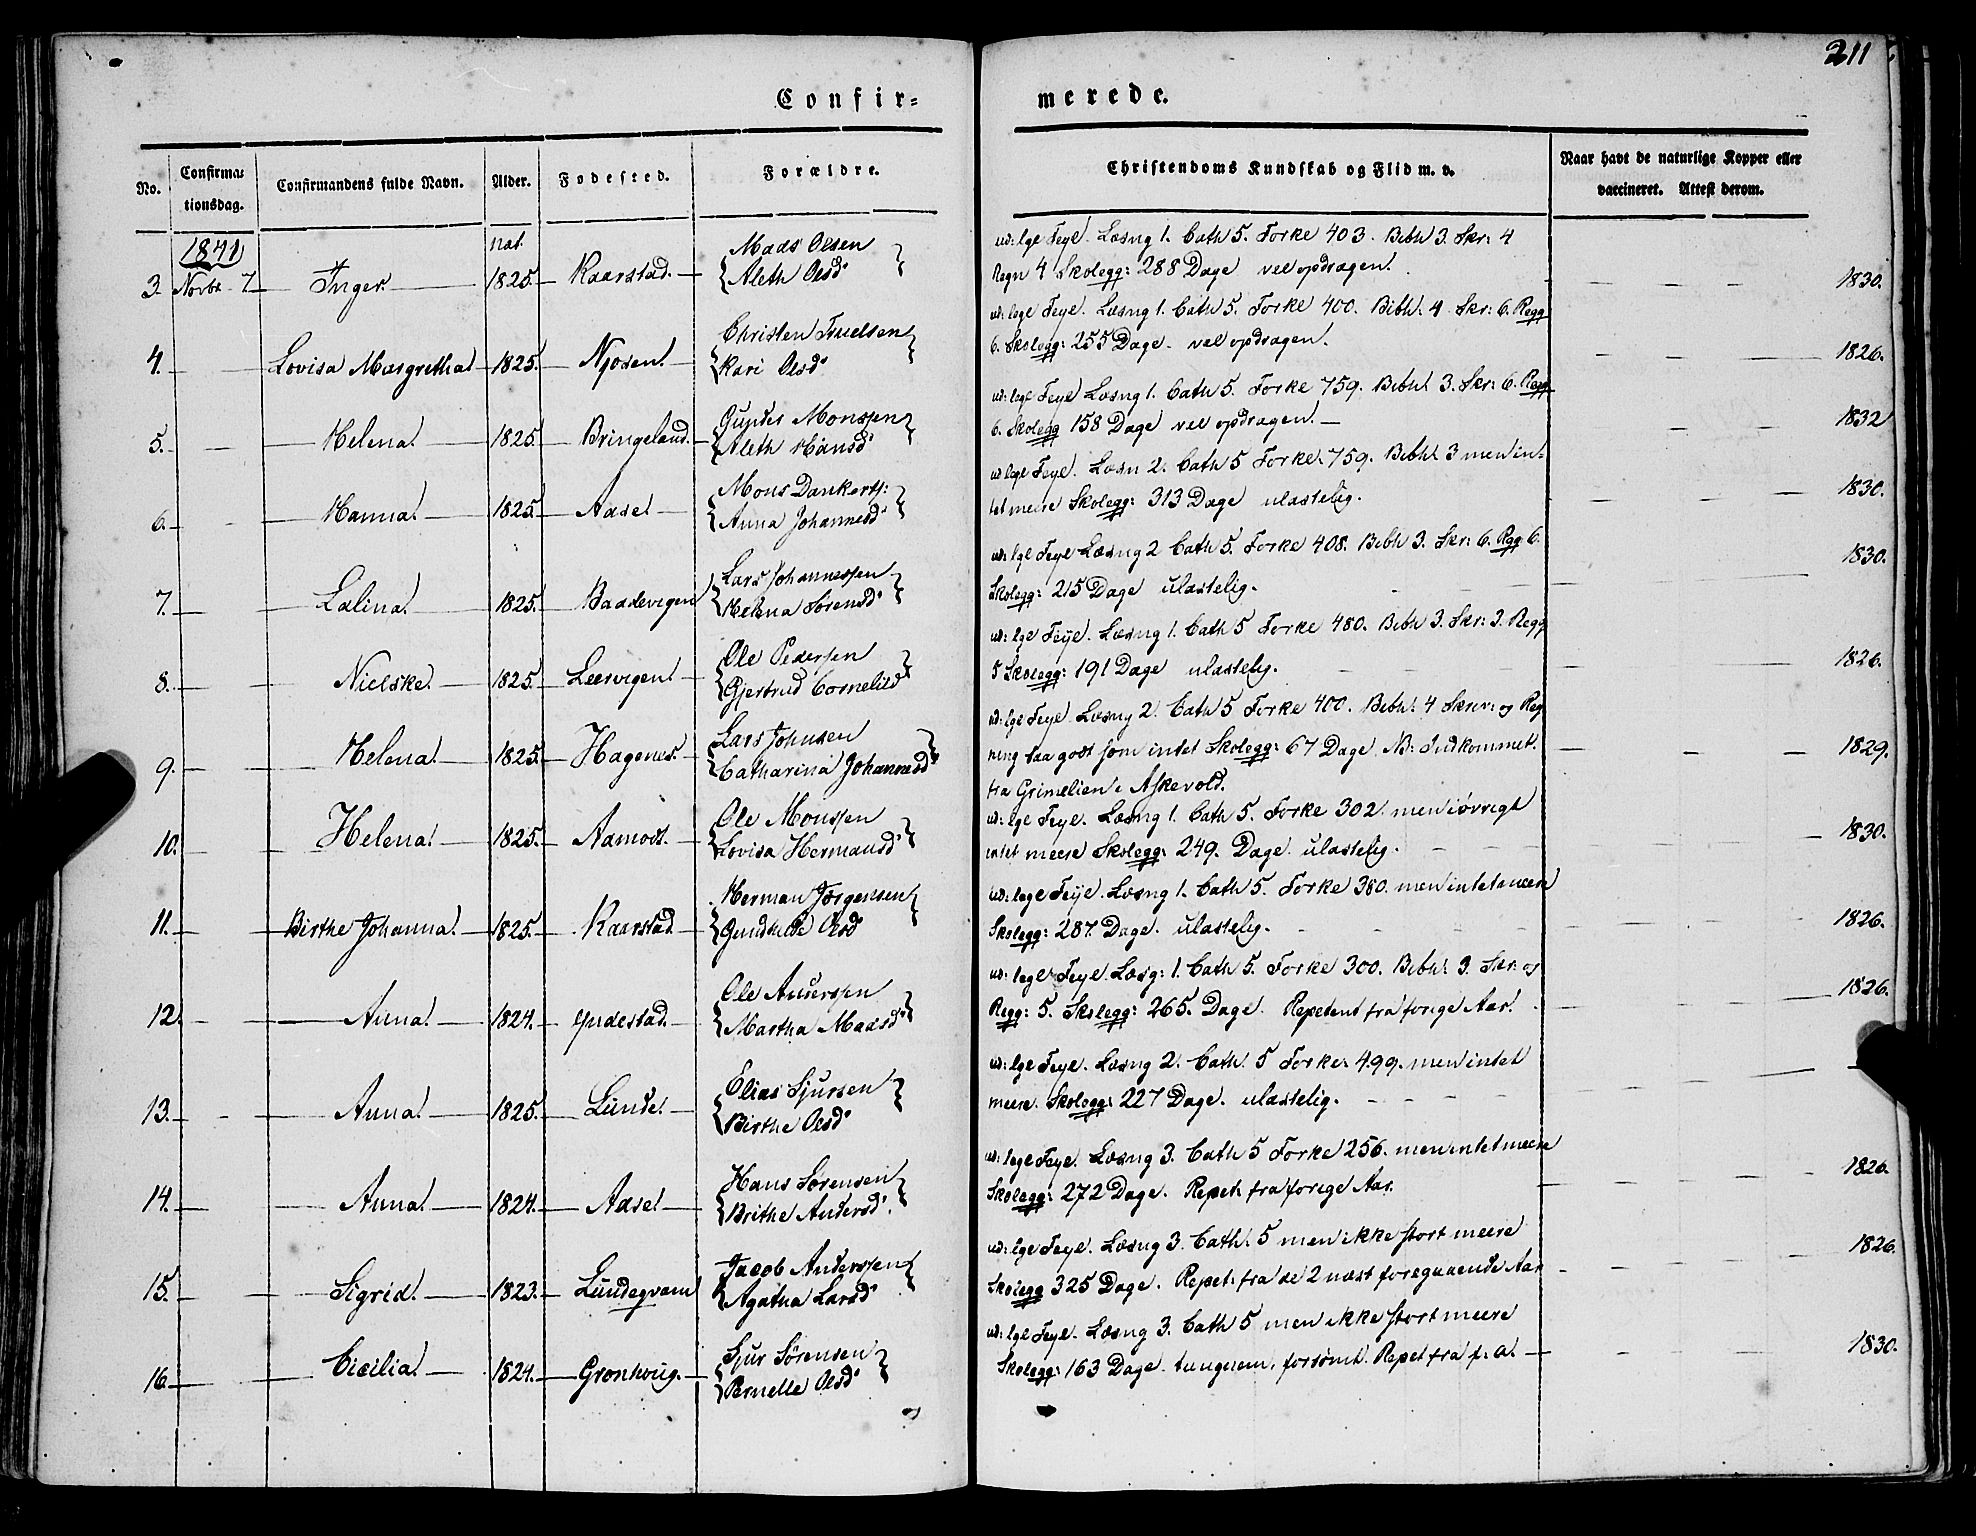 211
Confir=
merede.
No.
Confirma=
tionsdag.
Confirmandens fulde Navn.
Alder.
Fødested.
Forældre.
Christendoms Kundskab og Flid m. v.
Naar havt de naturlige Kopper eller
vaccineret. Attest derom.
1841
nat.
Mads Olsen
ud: lgl Feyl. Læsng 1. Cath 5. Forke 403. Bibh 3. Skr: 4
3. Novbr 7 Inger. 1825. Kaarstad. Aleth Olsd
Regn 4 Skolegg: 288 Dage vel opdragen. 1830.
Christen Truelsen
ud: lege Feyl. Læsng 1. Cath 5. Forke 400. Bibh: 4 Skr: 6. Regg
4. Lovisa Margretha 1825. Njøsen. Kari Olsd
6. Skolegg: 255 Dage. vel opdragen. 1826.
Monssen
ud: lege Feyl Læsng 1. Cath 5. Forke 759. Bibh 3. Skr: 6. Regg
5. Helena 1825 Bringeland. Aleth Hansd
6. Skolegg 158 Dage vel opdragen. 1832
Mons Dankerts:
ud lge Feyl. Læsn 2. Cath 5 Forke. 759. Bibh 3 men in-
6. Hanna 1825. Aase Anna Johannesd
tet meere Skolegg: 313 Dage ulastelig. 1830.
Lars Johannessen
ud: lgl Feyl Læsng 2 Cath 5. Forke 408. Bibh 3. Skr: 6. Rgg 6.
7. Lalina 1825. Baadevigen Helena Sørensd
Skolegg: 215 Dage ulastelig. 1830.
Ole Pedersen
ud: lge Feyl. Læsng 1. Cath 5 Forke 480. Bibh 3. Skr: 3. Regg
8. Nielske. 1825. Leervigen Gjertrud Cornelisd
5 Skolegg: 191 Dage ulastelig. 1826.
Lars Johnsen
ud: lge Feyl. Læsng 2. Cath 5 Forke 400. Bibh: 4 Skriv: og Reg
9. Helena. 1825. Hagenes. Catharina Johannesd
ning saa godt som intet Skolegg: 67 Dage. NB: Indkommet. 1829.
fra Grimelien i Askevold.
Ole Monssen
ud: lge Feyl. Læsng 1. Cath 5. Forke 302. men iøvrigt
10. Helena. 1825. Aamodt. Lovisa Hermansd
intet meere Skolegg: 249. Dage. ulastelig. 1830.
Herman Jørgensen
ud: lege Feyl. Læsng 1. Cath 5. Forke 380. men intet meere
11. Birthe Johanna. 1825. Kaarstad Gundhilde Olsd
Skolegg: 287. Dage. ulastelig. 1826.
Ole Anderssen
ud: lege Feyl. Læsg: 1. Cath 5. Forke 300. Bibh: 3. Skr: og
12. Anna. 1824. Martha Madsd
Regg: 5. Skolegg: 265. Dage. Repetent fra forige Aar. 1826.
Elias Sjursen
ud: lge Feyl. Læsng 2. Cath. 5 Forke 499. men intet
13. Anna. 1825. Lunde. Birthe Olsd
meere. Skolegg: 227 Dage. ulastelig.
Hans Sørensen
ud: lege Feyl. Læsng 3. Cath 5 Forke 256. men intet meere
14. Anna. 1824. Aase Brithe Andersd.
Skolegg: 272 Dage. Repet: fra forige Aar. 1826.
Jacob Anderssen
ud: lge Feyl. Læsng 3. Cath. 5 men ikke stort meere
15. Sigrid. 1823. Lundeqvam Agatha Larsd
Skolegg 325 Dage. Repet: fra de 2 næst foregaaende Aar 1826.
Sjur Sørensen
ud: lge Feyl. Læsng 3. Cath 5 men ikke stort meere
16. Cicilia. 1824. Grønhoug. Pernelle Olsd
Skolegg: 163 Dage. tungnem. forsømt. Repet fra f: a. 1830.